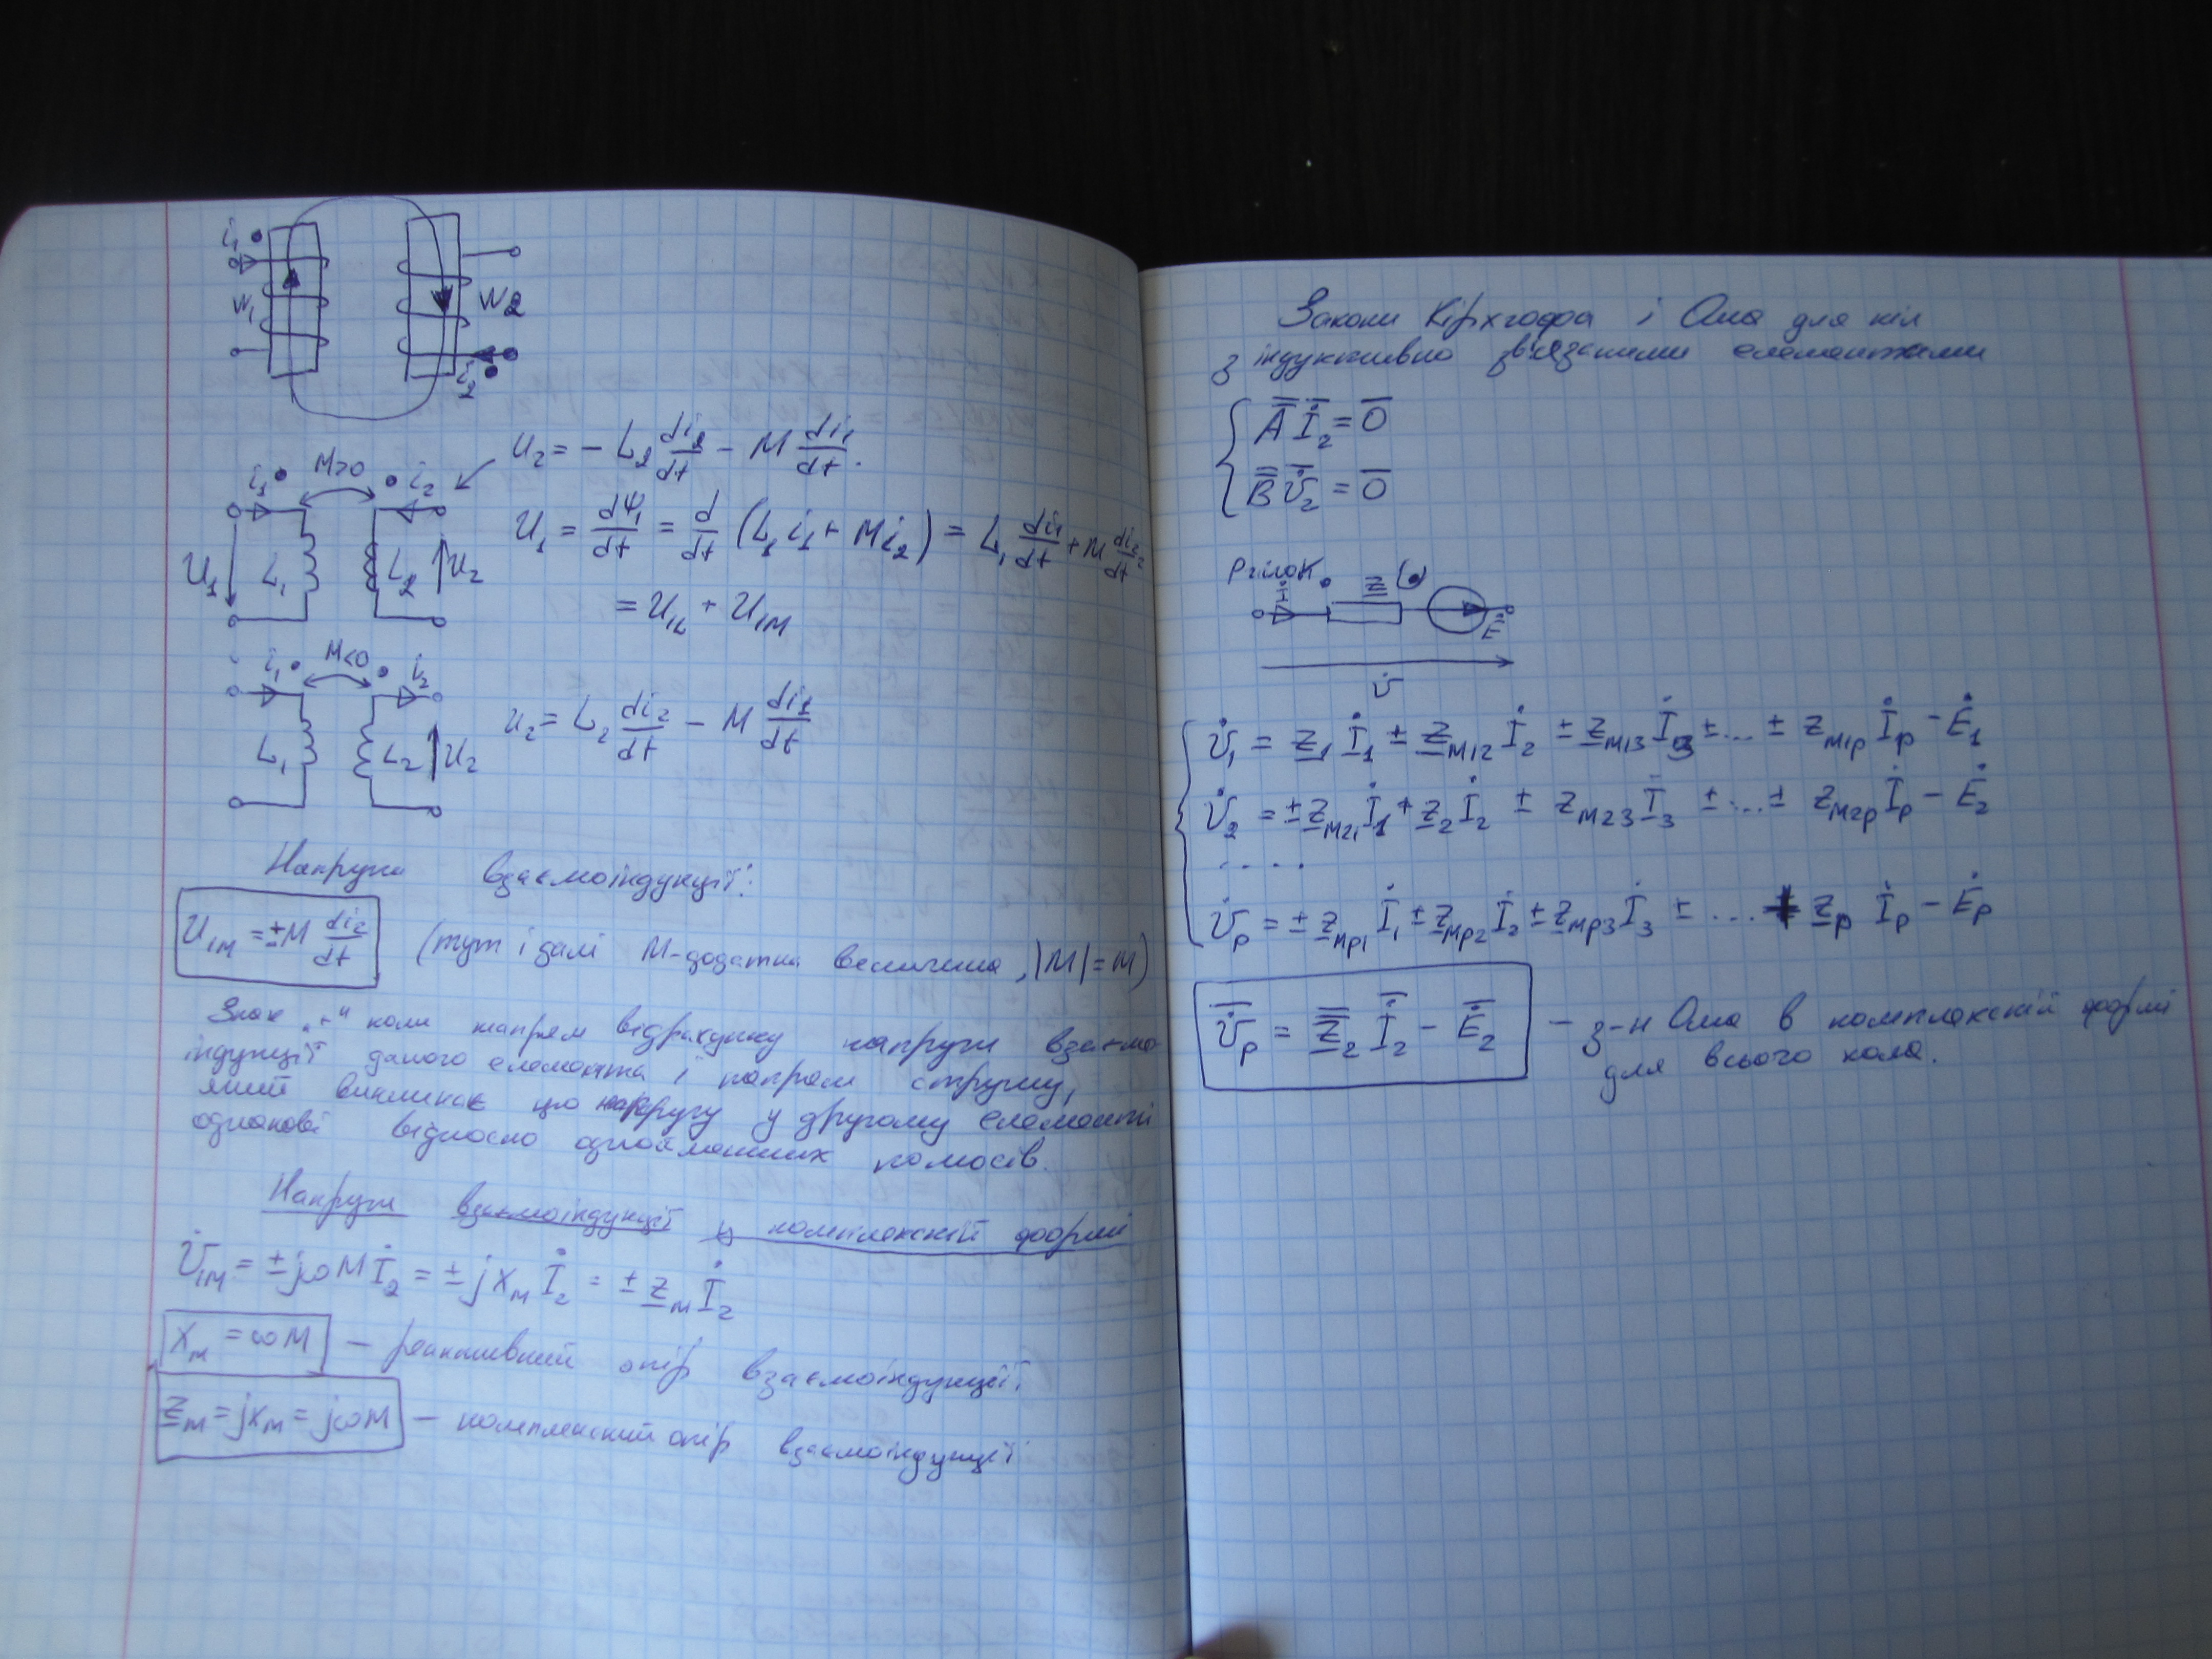 i₁
W₁
W₂
i₂
i₁ M>0 i₂
U₁ L₁ L₂ U₂
U₂ = - L₂ di₂/dt - M di₁/dt.
U₁ = dΨ₁/dt = d/dt (L₁ i₁ + M i₂) = L₁ di₁/dt + M di₂/dt
= U₁L + U₁M
i₁ M<0 i₂
L₁ L₂ U₂
U₂ = L₂ di₂/dt - M di₁/dt
Напруги взаємоіндукції:
U₁M = ± M di₂/dt (тут і далі M-додатна величина, |M| = M)
Знак „+" коли напрям відрахунку напруги взаємо
індукції даного елемента і напрям струму,
який викликає цю напругу у другому елементі
однакові відносно одноіменних полюсів.
Напруги взаємоіндукції у комплексній формі
U̇₁M = ± jωM İ₂ = ± j x_M İ₂ = ± Z̲_M İ₂
x_M = ωM — реактивний опір взаємоіндукції
Z̲_M = jx_M = jωM — комплексний опір взаємоіндукції
Закони Кірхгофа і Ома для кіл
з індуктивно зв'язаними елементами
A̿ İ̅₂ = 0̅
B̿ U̇̅₂ = 0̅
P гілок
İ Z̲ Ė
U̇
U̇₁ = Z̲₁ İ₁ ± Z̲_M12 İ₂ ± Z̲_M13 İ₃ ± ... ± Z_M1p İp - Ė₁
U̇₂ = ± Z̲_M21 İ₁ + Z̲₂ İ₂ ± Z_M23 İ₃ ± ... ± Z_M2p İp - Ė₂
.....
U̇p = ± Z̲_Mp1 İ₁ ± Z̲_Mp2 İ₂ ± Z̲_Mp3 İ₃ ± ... + Z̲p İp - Ėp
U̇̅p = Z̲̿₂ İ̅₂ - Ė̅₂ — з-н Ома в комплексній формі
для всього кола.